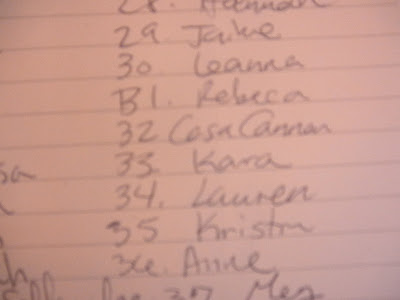 28. Hannah
29 Jaime
30 Leanna
31. Rebeca
32 Casa Cannan
33. Kara
34. Lauren
35 Kristin
36. Anne
37 Meg